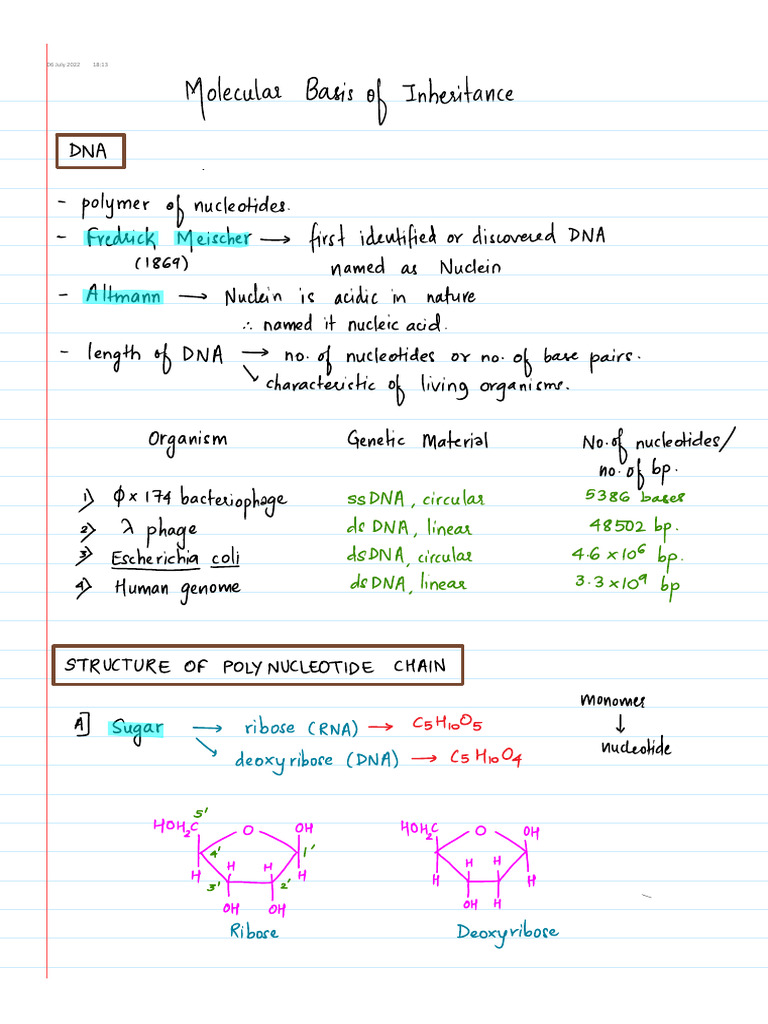 06 July 2022 18:13
Molecular Basis of Inheritance
DNA
- polymer of nucleotides.
- Fredrick Meischer → first identified or discovered DNA
(1869) named as Nuclein
- Altmann → Nuclein is acidic in nature
∴ named it nucleic acid.
- length of DNA → no. of nucleotides or no. of base pairs.
↘ characteristic of living organisms.
Organism Genetic Material No. of nucleotides/
no. of bp.
1) ϕ x 174 bacteriophage ssDNA, circular 5386 bases
2) λ phage dsDNA, linear 48502 bp.
3) Escherichia coli dsDNA, circular 4.6 x 10⁶ bp.
4) Human genome dsDNA, linear 3.3 x 10⁹ bp
STRUCTURE OF POLYNUCLEOTIDE CHAIN
monomers
↓
nucleotide
A] Sugar → ribose (RNA) → C₅H₁₀O₅
↘ deoxyribose (DNA) → C₅H₁₀O₄
5'
HOH₂C O OH HOH₂C O OH
4' 1'
H H H H H H H H
3' 2'
OH OH OH H
Ribose Deoxyribose